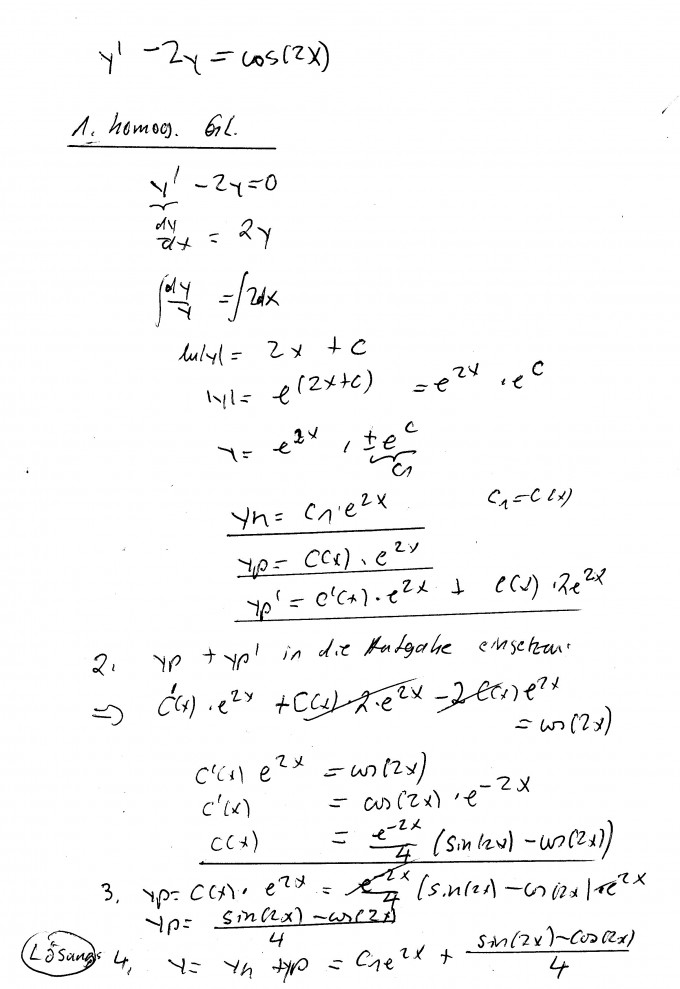 y' - 2y = cos(2x)
1. homog. Gl.
y' - 2y = 0
dy/dx = 2y
∫ dy/y = ∫ 2dx
ln|y| = 2x + C
|y| = e^(2x+C) = e^2x · e^C
y = e^2x · ±e^C
C1
yh = C1·e^2x C1 = C(x)
yp = C(x) · e^2x
yp' = C'(x) · e^2x + C(x) · 2e^2x
2. yp + yp' in die Aufgabe einsetzen:
⇒ C'(x) · e^2x + C(x) · 2 · e^2x - 2 C(x) e^2x
= cos(2x)
C'(x) e^2x = cos(2x)
C'(x) = cos(2x) · e^-2x
C(x) = e^-2x/4 (sin(2x) - cos(2x))
3. yp = C(x) · e^2x = e^-2x/4 (sin(2x) - cos(2x)) · e^2x
yp = sin(2x) - cos(2x)/4
Lösung: 4. y = yh + yp = C1e^2x + sin(2x) - cos(2x)/4